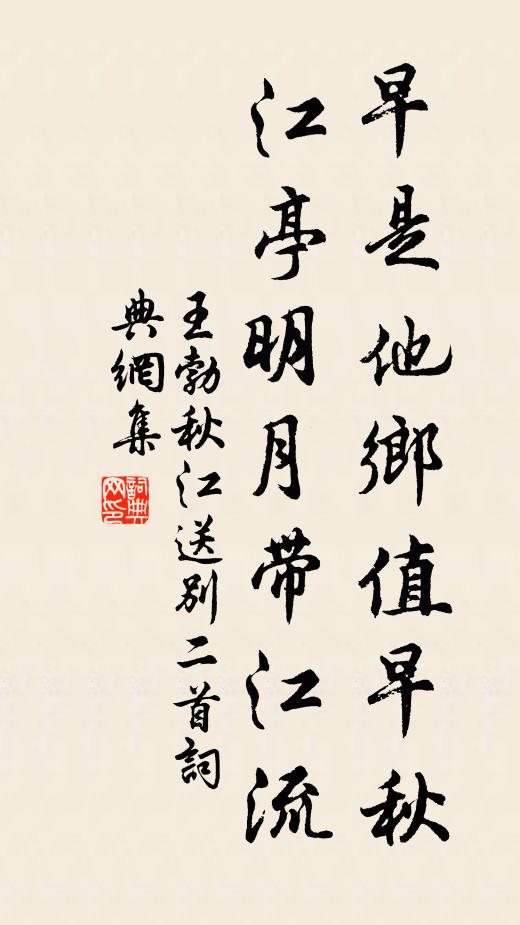 早是他鄉值早秋
江亭明月带江流
王勃秋江送別二首詞
典網集
詞典网印